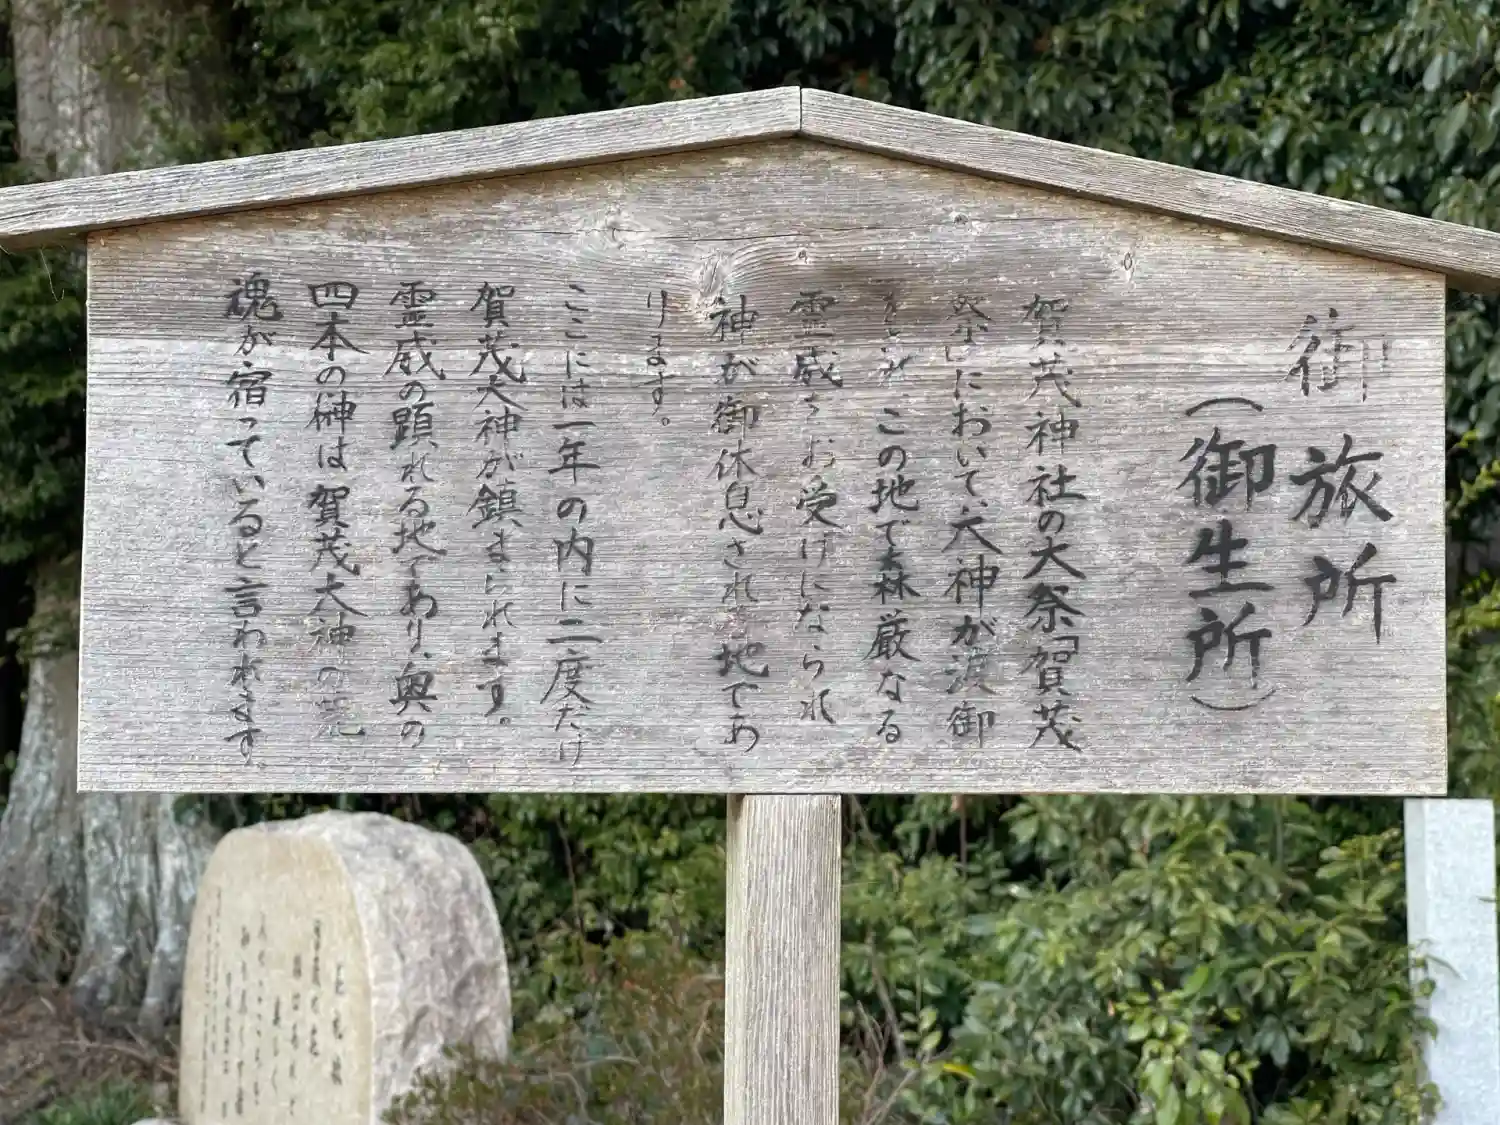 御旅所
(御生所)
賀茂神社の大祭「賀茂
祭」において、大神が渡御
され この地で森厳なる
霊威をお受けになられ
神が御休息される地であ
ります。
ここには一年の内に二度だけ
賀茂大神が鎮まられます。
霊威の顕れる地であり、奥の
四本の榊は賀茂大神の荒
魂が宿っていると言われます。